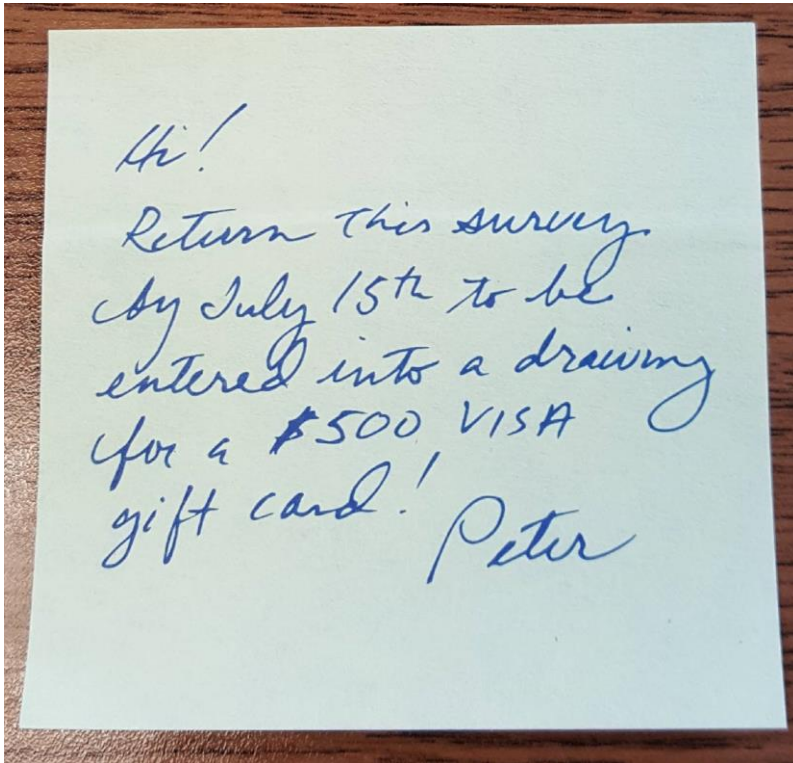 Hi!
Return this survey
by July 15th to be
entered into a drawing
for a $500 VISA
gift card!
Peter